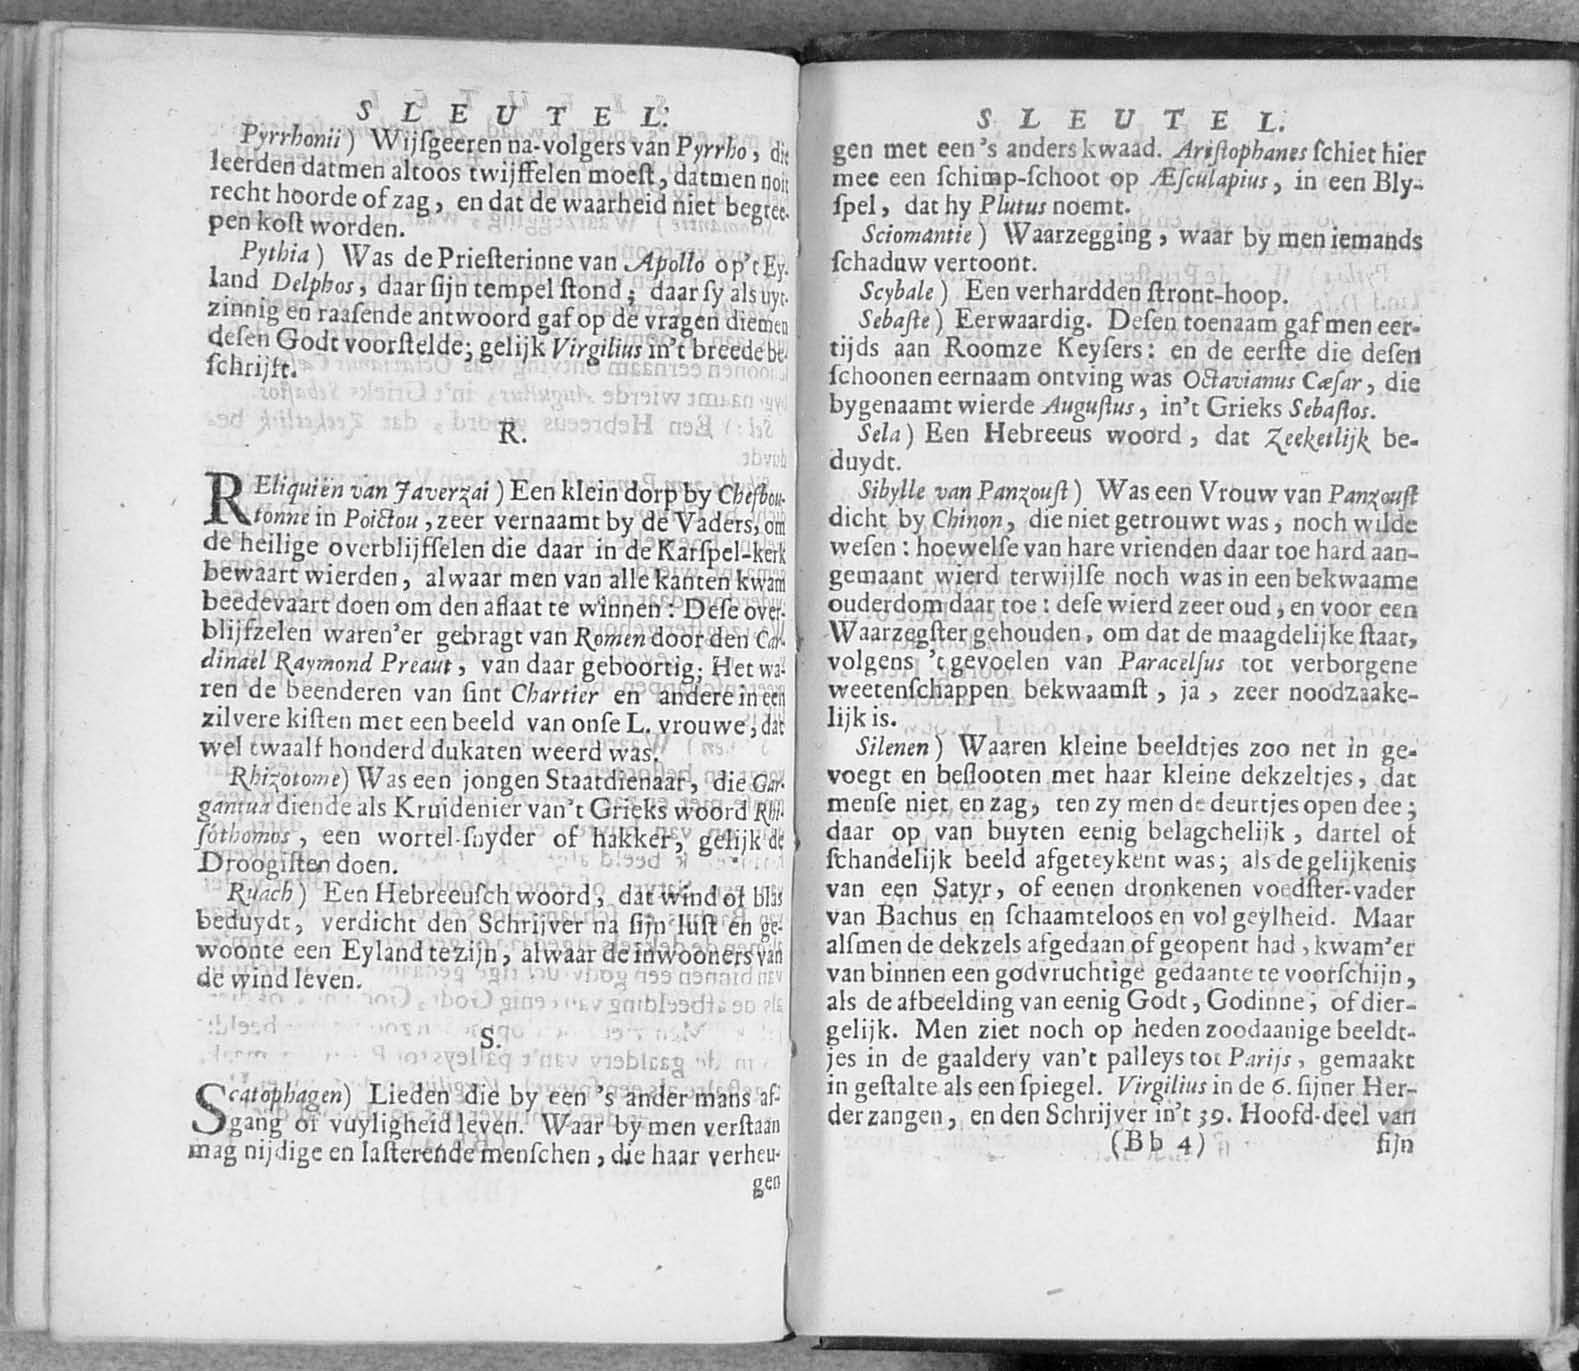 S L E U T E L.
Pyrrhonii) Wijſgeeren na-volgers van Pyrrho, die
leerden datmen altoos twijffelen moeſt, datmen noit
recht hoorde of zag, en dat de waarheid niet begree-
pen koſt worden.
Pythia) Was de Prieſterinne van Apollo op't Ey-
land Delphos, daar ſijn tempel ſtond; daar ſy als uyt-
zinnig en raaſende antwoord gaf op de vragen diemen
deſen Godt voorſtelde; gelijk Virgilius in't breede be-
ſchrijft.
R.
REliquiën van Javerzai) Een klein dorp by Chesbou-
tonne in Poictou, zeer vernaamt by de Vaders, om
de heilige overblijfſelen die daar in de Karſpel-kerk
bewaart wierden, alwaar men van alle kanten kwam
beedevaart doen om den aflaat te winnen: Deſe over-
blijfzelen waren'er gebragt van Romen door den Car-
dinael Raymond Preaut, van daar geboortig; Het wa-
ren de beenderen van ſint Chartier en andere in een
zilvere kiſten met een beeld van onſe L. vrouwe, dat
wel twaalf honderd dukaten weerd was.
Rhizotome) Was een jongen Staatdienaar, die Gar-
gantua diende als Kruidenier van't Grieks woord Rhi-
ſothomos, een wortel-ſnyder of hakker, gelijk de
Droogiſten doen.
Ruach) Een Hebreeuſch woord, dat wind of blas
beduydt, verdicht den Schrijver na ſijn luſt en ge-
woonte een Eyland te zijn, alwaar de inwooners van
de wind leven.
S.
Scatophagen) Lieden die by een 's ander mans af-
gang of vuyligheid leven. Waar by men verſtaan
mag nijdige en laſterende menſchen, die haar verheu-
gen
S L E U T E L.
gen met een 's anders kwaad. Ariſtophanes ſchiet hier
mee een ſchimp-ſchoot op Æſculapius, in een Bly-
ſpel, dat hy Plutus noemt.
Sciomantie) Waarzegging, waar by men iemands
ſchaduw vertoont.
Scybale) Een verhardden ſtront-hoop.
Sebaſte) Eerwaardig. Deſen toenaam gaf men eer-
tijds aan Roomze Keyſers: en de eerſte die deſen
ſchoonen eernaam ontving was Octavianus Cæſar, die
bygenaamt wierde Auguſtus, in't Grieks Sebaſtos.
Sela) Een Hebreeus woord, dat Zeeketlijk be-
duydt.
Sibylle van Panzouſt) Was een Vrouw van Panzouſt
dicht by Chinon, die niet getrouwt was, noch wilde
weſen: hoewelſe van hare vrienden daar toe hard aan-
gemaant wierd terwijlſe noch was in een bekwaame
ouderdom daar toe: deſe wierd zeer oud, en voor een
Waarzegſter gehouden, om dat de maagdelijke ſtaat,
volgens 't gevoelen van Paracelſus tot verborgene
weetenſchappen bekwaamſt, ja, zeer noodzaake-
lijk is.
Silenen) Waaren kleine beeldtjes zoo net in ge-
voegt en beſlooten met haar kleine dekzeltjes, dat
menſe niet en zag, ten zy men de deurtjes open dee;
daar op van buyten eenig belagchelijk, dartel of
ſchandelijk beeld afgeteykent was; als de gelijkenis
van een Satyr, of eenen dronkenen voedſter-vader
van Bachus en ſchaamteloos en vol geylheid. Maar
alſmen de dekzels afgedaan of geopent had, kwam'er
van binnen een godvruchtige gedaante te voorſchijn,
als de afbeelding van eenig Godt, Godinne, of dier-
gelijk. Men ziet noch op heden zoodaanige beeldt-
jes in de gaaldery van't palleys tot Parijs, gemaakt
in geſtalte als een ſpiegel. Virgilius in de 6. ſijner Her-
derzangen, en den Schrijver in't 39. Hoofd-deel van
(Bb 4) ſijn